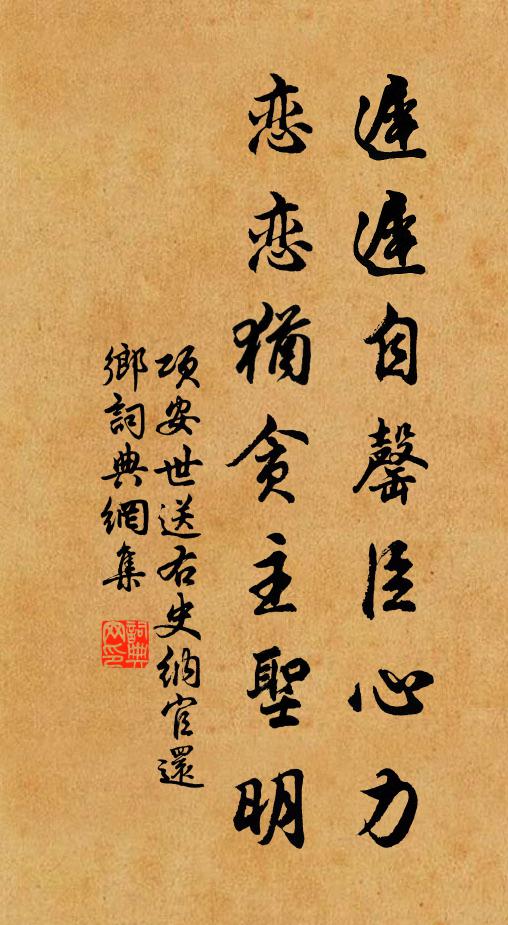 遲遲自罄臣心力
恋恋猶貪主聖明
项安世送右史納官還
鄉詞典網集
詞典
网印